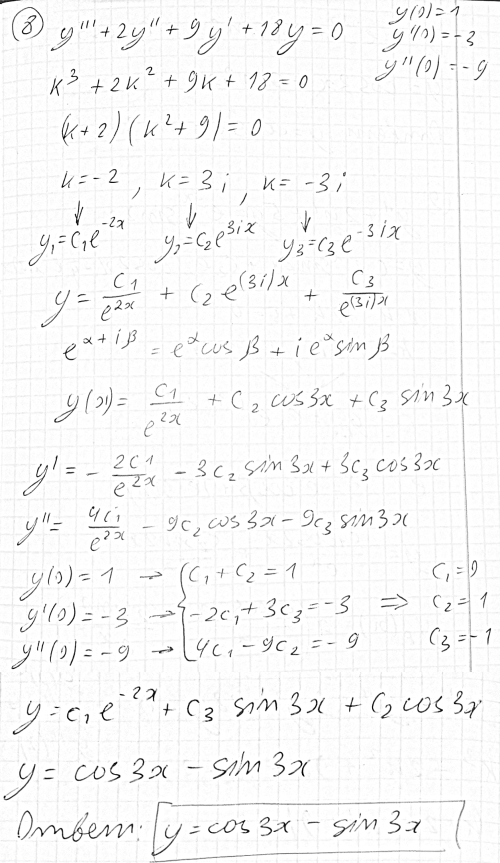 (8) y''' + 2y'' + 9y' + 18y = 0
y(0) = 1
y'(0) = -3
y''(0) = -9
k³ + 2k² + 9k + 18 = 0
(k+2)(k²+9) = 0
k = -2, k = 3i, k = -3i
↓ ↓ ↓
y₁ = C₁e^{-2x} y₂ = C₂e^{3ix} y₃ = C₃e^{-3ix}
y = C₁/e^{2x} + C₂e^{(3i)x} + C₃/e^{(3i)x}
e^{α+iβ} = e^α cos β + i e^α sin β
y(x) = C₁/e^{2x} + C₂ cos 3x + C₃ sin 3x
y' = - 2C₁/e^{2x} - 3C₂ sin 3x + 3C₃ cos 3x
y'' = 4C₁/e^{2x} - 9C₂ cos 3x - 9C₃ sin 3x
y(0) = 1 → { C₁ + C₂ = 1 C₁ = 0
y'(0) = -3 → { -2C₁ + 3C₃ = -3 ⇒ C₂ = 1
y''(0) = -9 → { 4C₁ - 9C₂ = -9 C₃ = -1
y = C₁e^{-2x} + C₃ sin 3x + C₂ cos 3x
y = cos 3x - sin 3x
Ответ: y = cos 3x - sin 3x